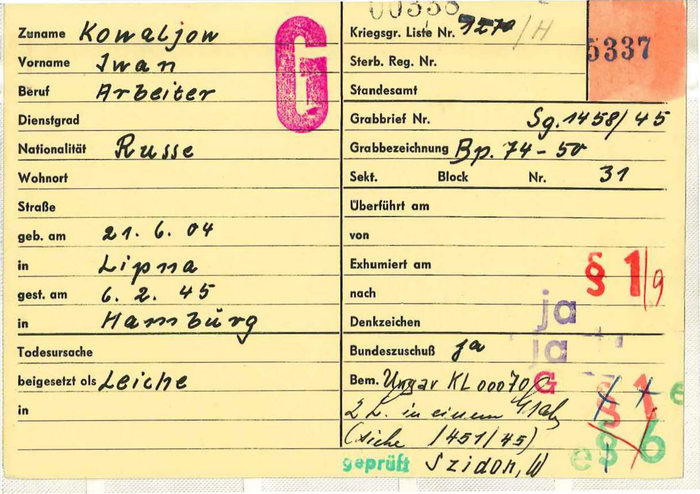 Zuname Kowaljow
Vorname Iwan
Beruf Arbeiter
Dienstgrad
Nationalität Russe
Wohnort
Straße
geb. am 21. 6. 04
in Lipna
gest. am 6. 2. 45
in Hamburg
Todesursache
beigesetzt als Leiche
in
G
00338
Kriegsgr. Liste Nr. 1270/H
5337
Sterb. Reg. Nr.
Standesamt
Grabbrief Nr. Sg. 1458/45
Grabbezeichnung Bp. 74-50
Sekt. Block Nr. 31
Überführt am
von
Exhumiert am
§ 1/9
nach
ja
Denkzeichen
ja
Bundeszuschuß ja
Bem. Ungar KL 00070
G
§ 1 e
2 L. in einem Grab
(siehe 1451/45)
e § 6
geprüft Szidon, W